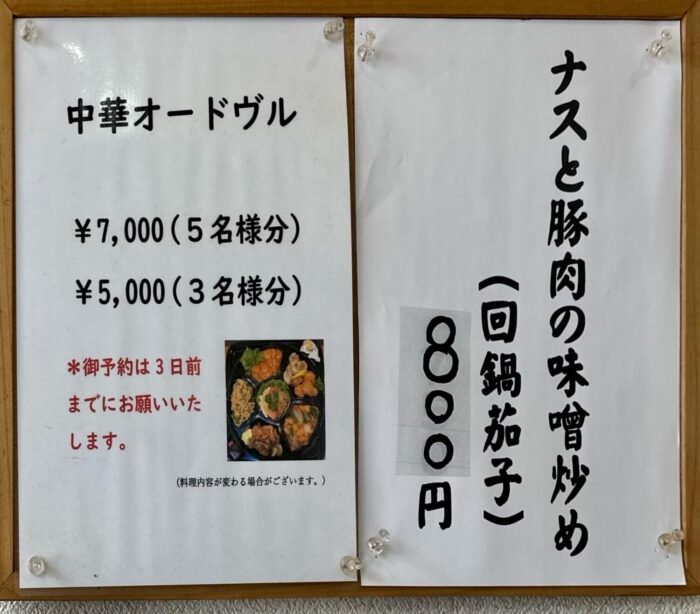 中華オードヴル
¥7,000(５名様分)
¥5,000(３名様分)
＊御予約は３日前
までにお願いいた
します。
(料理内容が変わる場合がございます。)
ナスと豚肉の味噌炒め
(回鍋茄子)
８００円